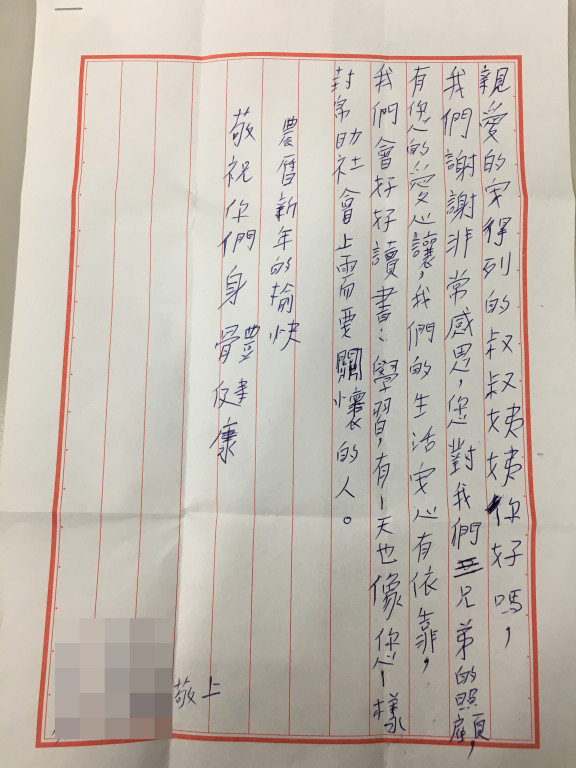 親愛的安得列的叔叔姨姨你好嗎，
我們謝謝非常感恩，您對我們三兄弟的照顧，
有您的愛心讓，我們的生活安心有依靠，
我們會好好讀書：學習，有一天也像您一樣
封帘助社會上需要關懷的人。
農曆新年的愉快
敬祝你們身體健康
敬上